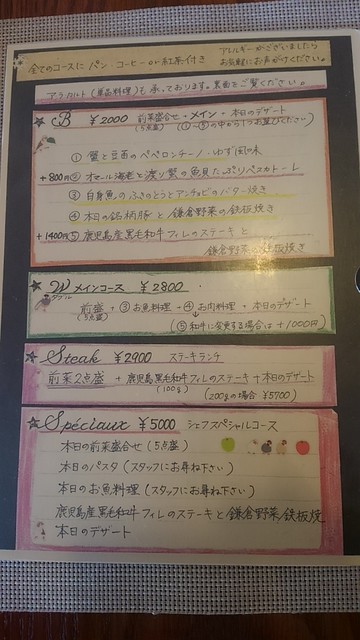 全てのコースに パン・コーヒーor紅茶付き
アレルギーがございましたら
お気軽にお声がけください。
アラカルト(単品料理)も承っております。裏面をご覧ください。
★B ¥2000 前菜盛合せ+メイン+本日のデザート
(5点盛) (①〜⑤の中から1つお選びください)
① 蟹と豆苗のペペロンチーノ・ゆず風味
+800円② オマール海老と渡り蟹の魚貝たっぷりペスカトーレ
③ 白身魚のふきのとうとアンチョビのバター焼き
④ 本日の銘柄豚と鎌倉野菜の鉄板焼き
+1400円⑤ 鹿児島産黒毛和牛フィレのステーキと
鎌倉野菜の鉄板焼き
★W メインコース ¥2800
ダブル
前盛+③お魚料理+④お肉料理+本日のデザート
(5点盛)
(⑤和牛に変更する場合は+1000円)
★Steak ¥2900 ステーキランチ
前菜2点盛+鹿児島産黒毛和牛フィレのステーキ+本日のデザート
(100g) (200gの場合 ¥5700)
★Spéciaux ¥5000 シェフスペシャルコース
本日の前菜盛合せ(5点盛)
本日のパスタ(スタッフにお尋ね下さい)
本日のお魚料理(スタッフにお尋ね下さい)
鹿児島産黒毛和牛フィレのステーキと鎌倉野菜/鉄板焼
本日のデザート